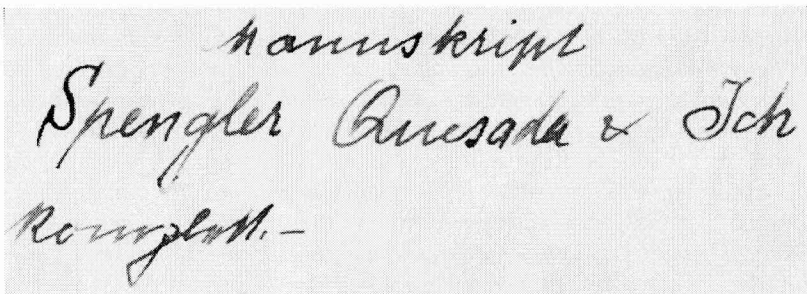 Manuskript
Spengler Quesada & Ich
komplett.—